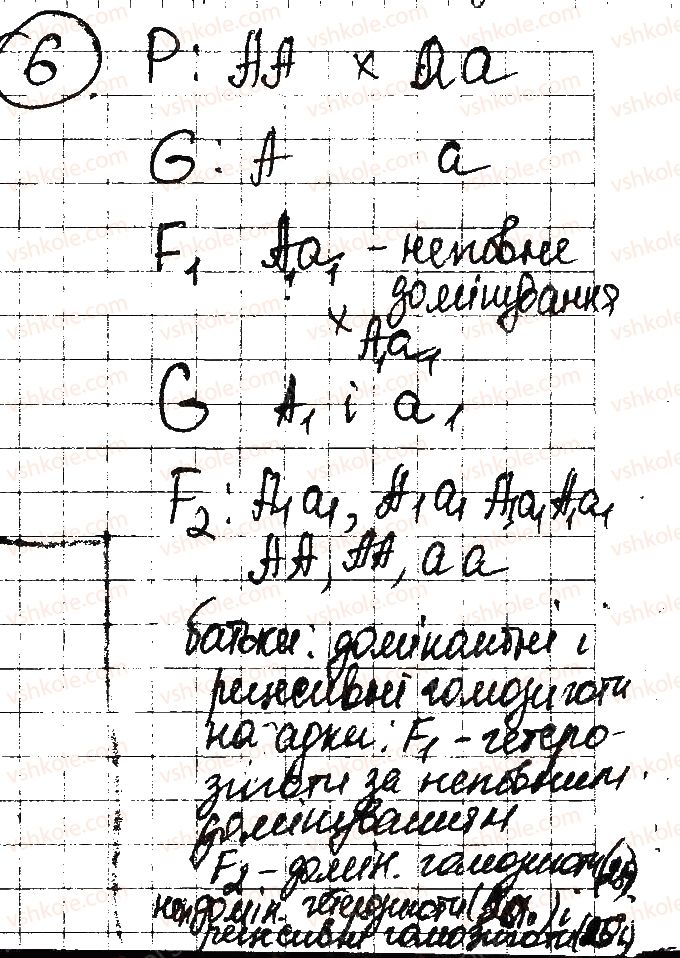 6 P: AA × aa
G: A a
F1 A1a1 - неповне
домінування
× A1a1
G A1 і a1
F2: A1a1, A1a1 A1a1 A1a1
AA, AA, aa
батьки: домінантні і
рецесивні гомозиготи
нащадки: F1 - гетеро-
зиготи за неповним
домінуванням
F2 - домін. гомозиготи (25)
домін. гетерозиготи (50%) і
рецесивні гомозиготи (25%)